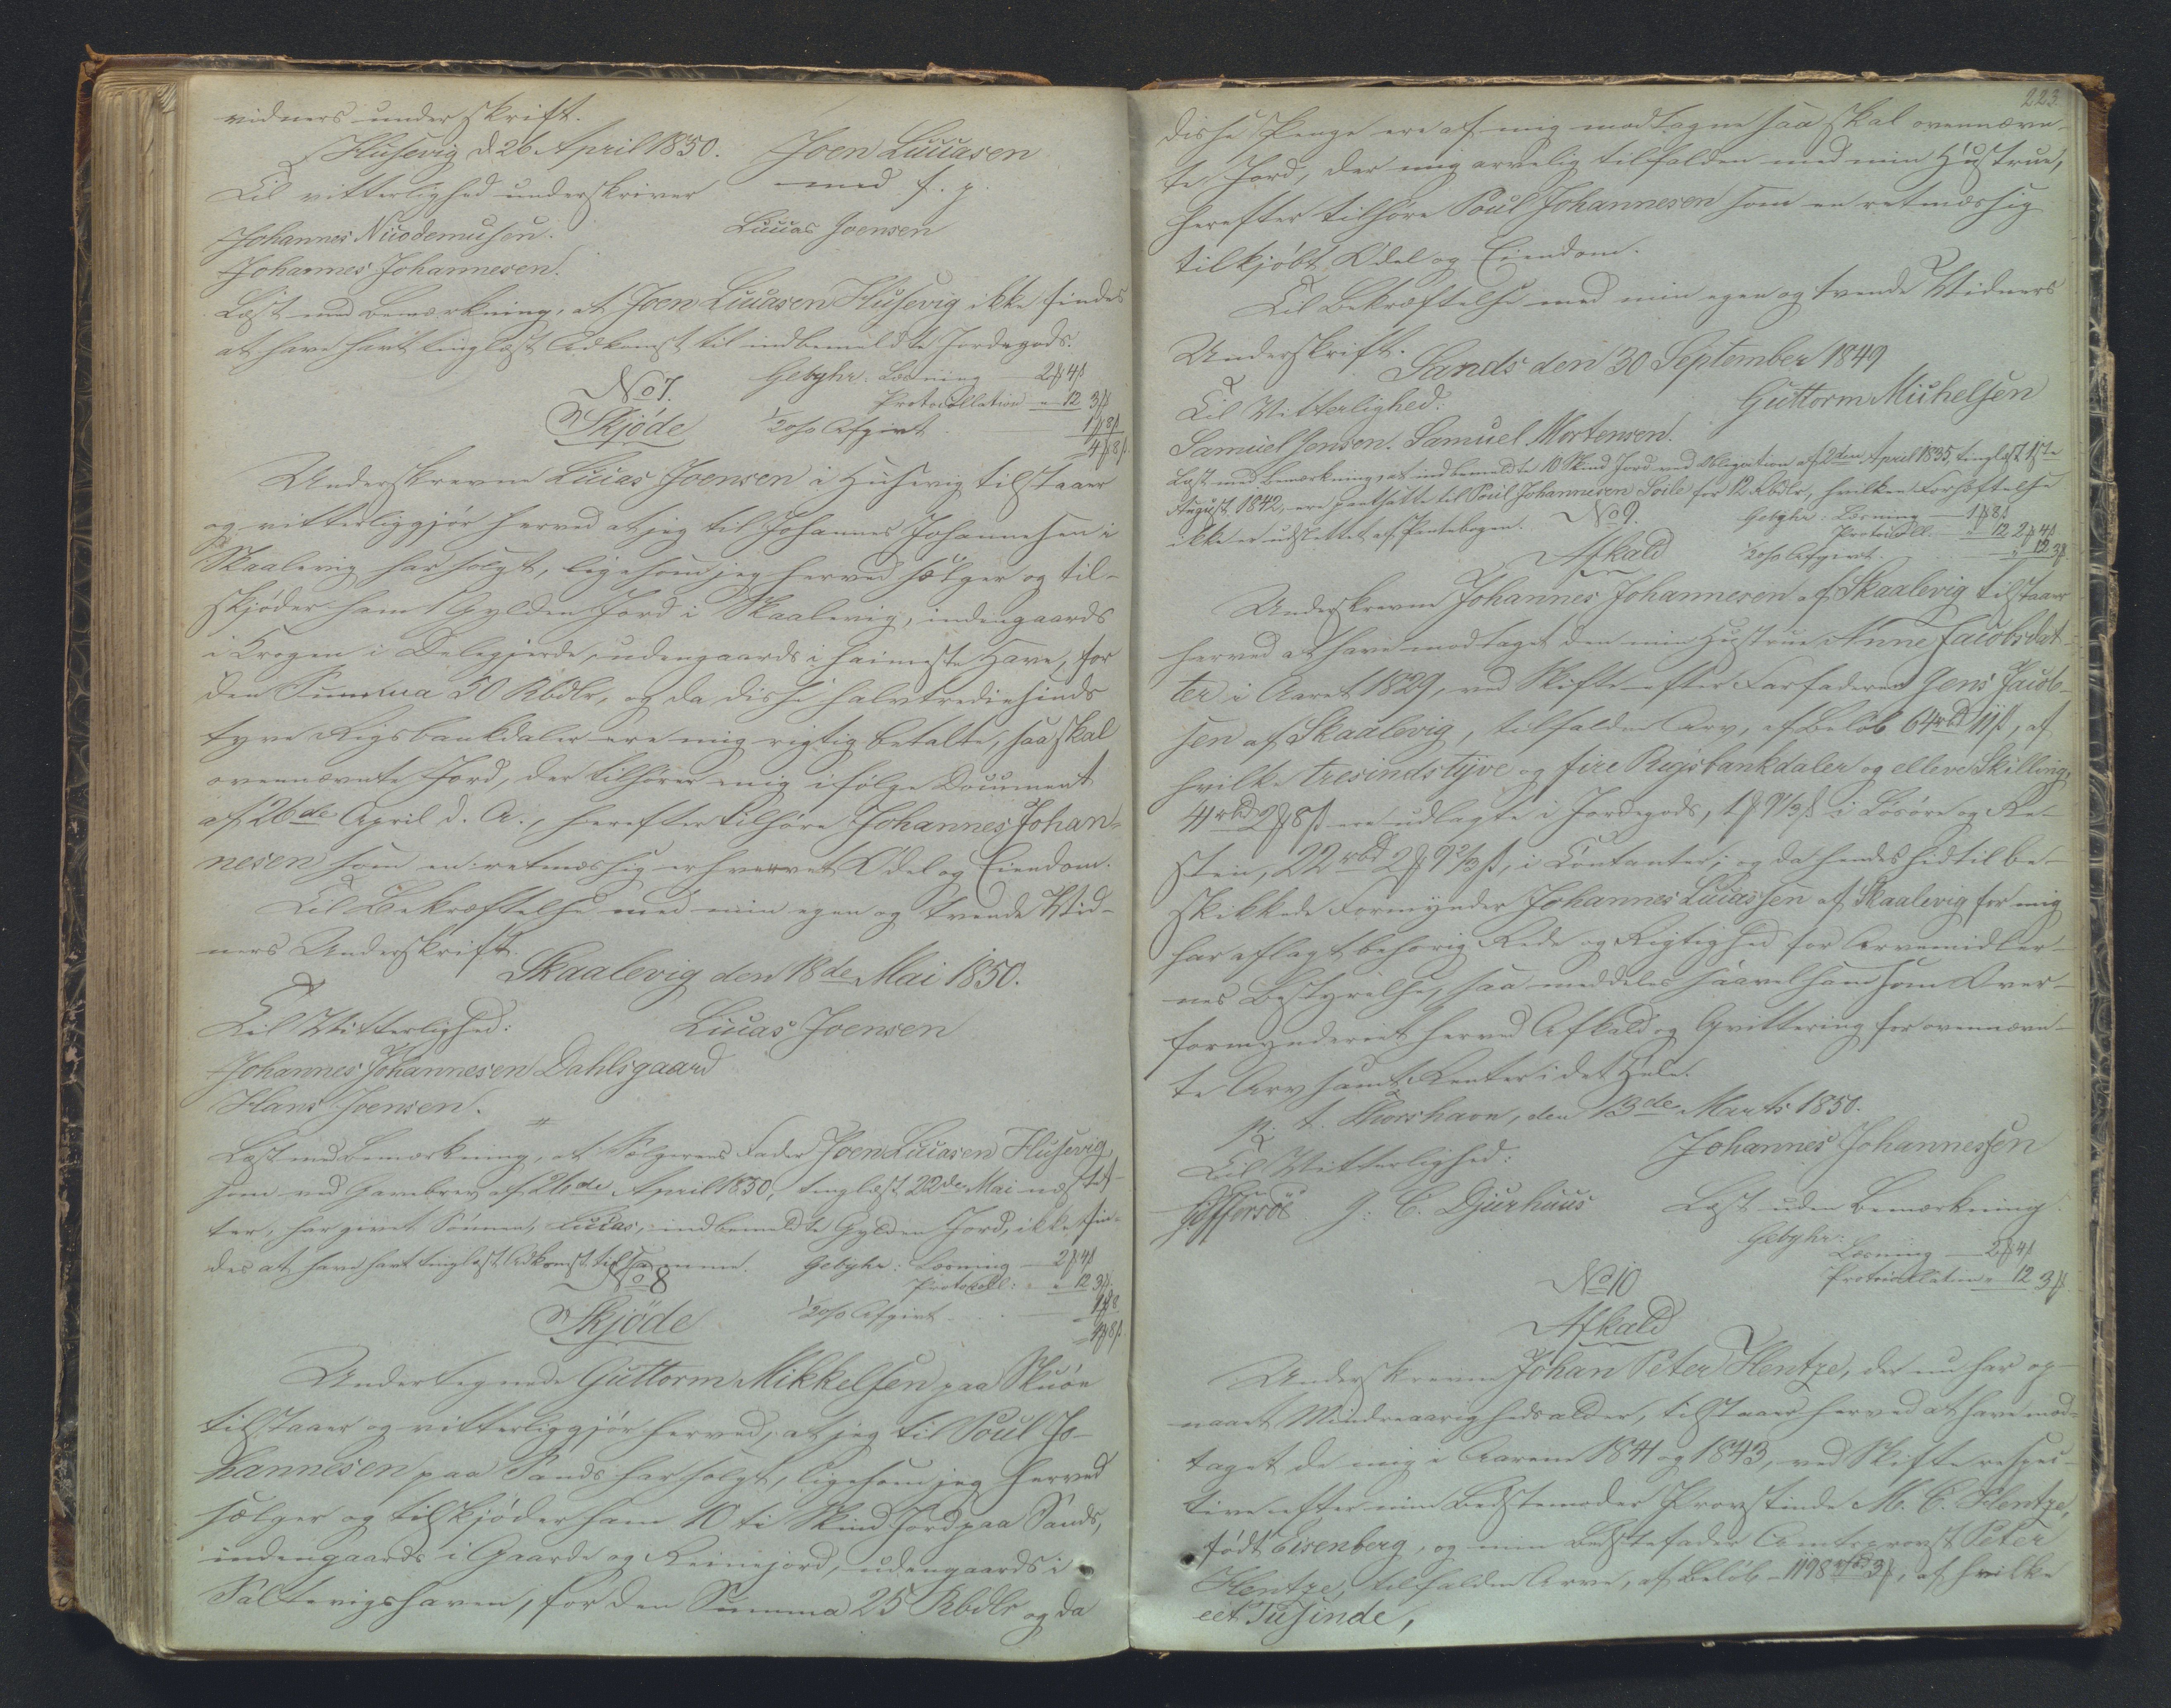 vidners underskrift.
Husevig d 26 April 1850. Joen Lucasen
Til vitterlighed underskriver med f. p.
Johannes Nicodemusen. Lucas Joensen
Johannes Johannesen.
Læst med Bemærkning, at Joen Lucasen Husevig ikke findes
at have havt tinglæst Adkomst til indbemeldte Jordegods.
No 7. Gebyhr. Læsning 2 4
Protocollation " 12 3
Skjøde 1/2 o/o Afgivt 1 8
4 8
Underskrevne Lucas Joensen i Husevig tilstaaer
og vitterliggjør herved at jeg til Johannes Johannesen i
Skaalevig har solgt, ligesom jeg herved sælger og til-
skjøder ham 1 Gylden Jord i Skaalevig, indengaards
i Krogen i Delegjerde, udengaards i heimeste Have, for
den Summa 50 Rbdlr, og da disse halvtrediesinds
tyve Rigsbankdaler ere mig rigtig betalte, saa skal
ovennævnte Jord, der tilhører mig ifølge Document
af 26de April d. A., herefter tilhøre Johannes Johan-
nesen som en retmæssig erhvervet Odel og Eiendom.
Til Bekræftelse med min egen og tvende Vid-
ners Underskrift.
Skaalevig den 18de Mai 1850.
Til Vitterlighed: Lucas Joensen
Johannes Johannesen Dahlsgaard
Hans Joensen.
Læst med Bemærkning, at Sælgerens Fader Joen Lucasen Husevig,
som ved Gavebrev af 26de April 1850, tinglæst 22de Mai næstef-
ter, har givet Sønnen, Lucas, indbemeldte Gylden Jord, ikke fin-
des at have havt tinglæst Adkomst til samme. Gebyhr: Læsning 2 4
No 8 Protokoll: " 12 3
Skjøde 1/2 o/o Afgivt 1 8
4 8
Undertegnede Guttorm Mikkelsen paa Skuøe
tilstaaer og vitterliggjør herved, at jeg til Poul Jo-
hannesen paa Sands har solgt, ligesom jeg herved
sælger og tilskjøder ham 10 ti Skind Jord paa Sands,
indengaards i Gaarde og Reinejord, udengaards i
Saltevigshaven, for den Summa 25 Rbdlr og da
223.
disse Penge ere af mig modtagne saa skal ovennævn-
te Jord, der mig arvelig tilfalden med min Hustrue,
herefter tilhøre Poul Johannesen som en retmæssig
tilkjøbt Odel og Eiendom.
Til Bekræftelse med min egen og tvende Vidners
Underskrift.
Sands den 30 September 1849
Til Vitterlighed. Guttorm Michelsen
Samuel Jensen. Samuel Mortensen.
Læst med Bemærkning, at indbemeldte 10 Skind Jord ved Obligation af 2den April 1835, tinglæst 1ste
August 1842, ere pantsatte til Poul Johannesen Soile for 12 Rbdlr, hvilken Forhæftelse
ikke er udslettet af Pantebogen. No 9. Gebyhr: Læsning 1 8
Protocoll. " 12 2 4
Afkald 1/2 o/o Afgivt " 12 3
Underskrevne Johannes Johannesen af Skaalevig tilstaaer
herved at have modtaget den min Hustrue Anne Jacobsdat-
ter i Aaret 1829, ved Skifte efter Farfaderen Jens Jacob-
sen af Skaalevig, tilfaldne Arv, af Beløb 64 rbd 11 s, af
hvilke tresindstyve og fire Rigsbankdaler og elleve Skilling,
41 rbd 2 8 ere udlagte i Jordegods, 1 9 1/3 s i Løsøre og Re-
sten, 22 rbd 2 9 2/3 s, i Contanter; og da hendes hidtil be-
skikkede Formynder Johannes Lucassen af Skaalevig for mig
har aflagt behørig Rede og Rigtighed for Arvemidler-
nes Bestyrelse, saa meddeles saavel ham som Over-
formynderiet herved Afkald og Qvittering for ovennævn-
te Arv samt Renter i det Hele.
p. t. Thorshavn, den 13de Marts 1850.
Til Vitterlighed: Johannes Johannessen
J: C. Djurhuus Læst uden Bemærkning.
Gebyhr:
Læsning 2 4
No 10 Protocollation " 12 3
Afkald
Underskrevne Johan Peter Hentze, der nu har op-
naaet Mindreaarighedsalder, tilstaaer herved at have mod-
taget de mig i Aarene 1841 og 1843, ved Skifte respec-
tive efter min Bedstemoder Provstinde M. C. Hentze,
født Eisenberg, og min Bedstefader Amtsprovst Peter
Hentze, tilfaldne Arve, af Beløb 1198 rbd 3, af hvilke
eet Tusinde,